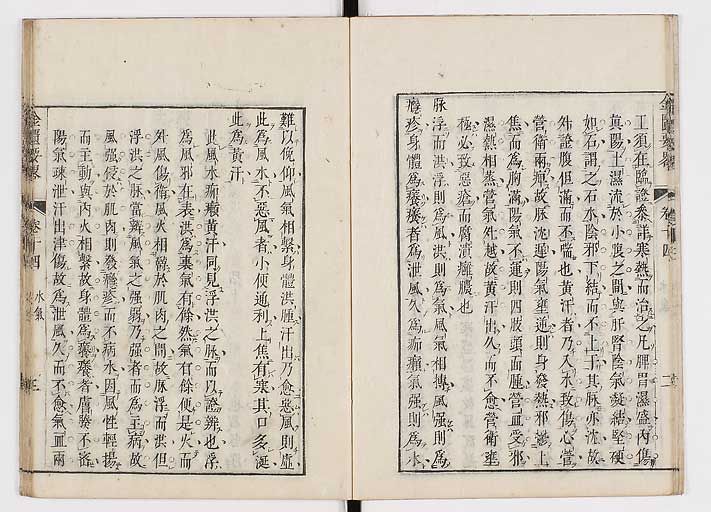 工須在臨證叅詳寒熱而治之凡脾胃濕盛內傷
真陽土濕流於小腹之間與肝腎陰氣凝結堅硬
如石謂之石水陰邪下結而不上于其脉亦沈故
外證腹但滿而不喘也黃汗者乃入水致傷心營
營衛兩痹故脉沈遲陽氣壅遏則身發熱邪
上
焦而為胸滿陽氣不運則四肢頭面腫營血受邪
濕熱相蒸營氣外越故黃汗出久而不愈營衛壅
極必致惡瘡而腐潰癰膿也
脉浮而洪浮則為風洪則為氣風氣相搏風强則為
癮疹身體為癢癢者為泄風久為痂癩氣强則為水
難以俛仰風氣相繫身體洪腫汗出乃愈惡風則虛
此為風水不惡風者小便通利上焦有寒其口多涎
此為黃汗
此風水痂癩黃汗同見浮洪之脉而以證辨也浮
為風邪在表洪為裏氣有餘然氣有餘便是火而
外風傷衛風火相
於肌肉之間故脉浮而洪但
浮洪之脉當辨風氣之强弱乃强者而為主病故
風强侵於肌肉則發癮疹而不病水因風性輕揚
而主動與內火相繫故身體為癢癢者膚腠不密
陽氣疎泄汗出津傷故為泄風久而不愈氣血兩
金匱要畧
卷十四
水氣
二
三